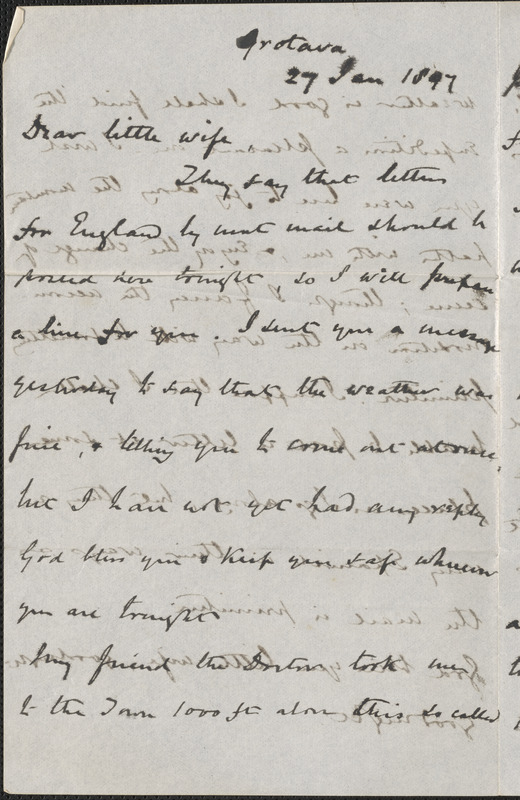 Orotava
27 Jan 1897
Dear little wife
They say that letters
for England by next mail should be
posted here tonight, so I will prepare
a line for you. I sent you a message
yesterday to say that the weather was
fine, & telling you to come out at once,
but I have not yet had any reply
God bless you & keep you safe wherever
you are tonight.
My friend the Doctor took me
to the Town 1000 ft above this so called